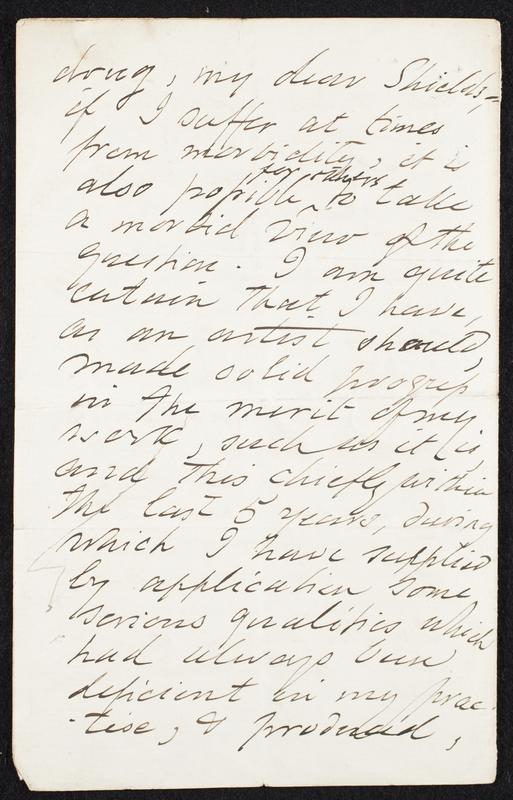 doing, my dear Shields,—
if I suffer at times
from morbidity, it is
also possible for others to take
a morbid view of the
question. I am quite
certain that I have,
as an artist should,
made solid progress
in the merit of my
work, such as it is,
and this chiefly within
the last 5 years, during
which I have supplied
by application some
serious qualities which
had always been
deficient in my prac-
-tise, & produced,